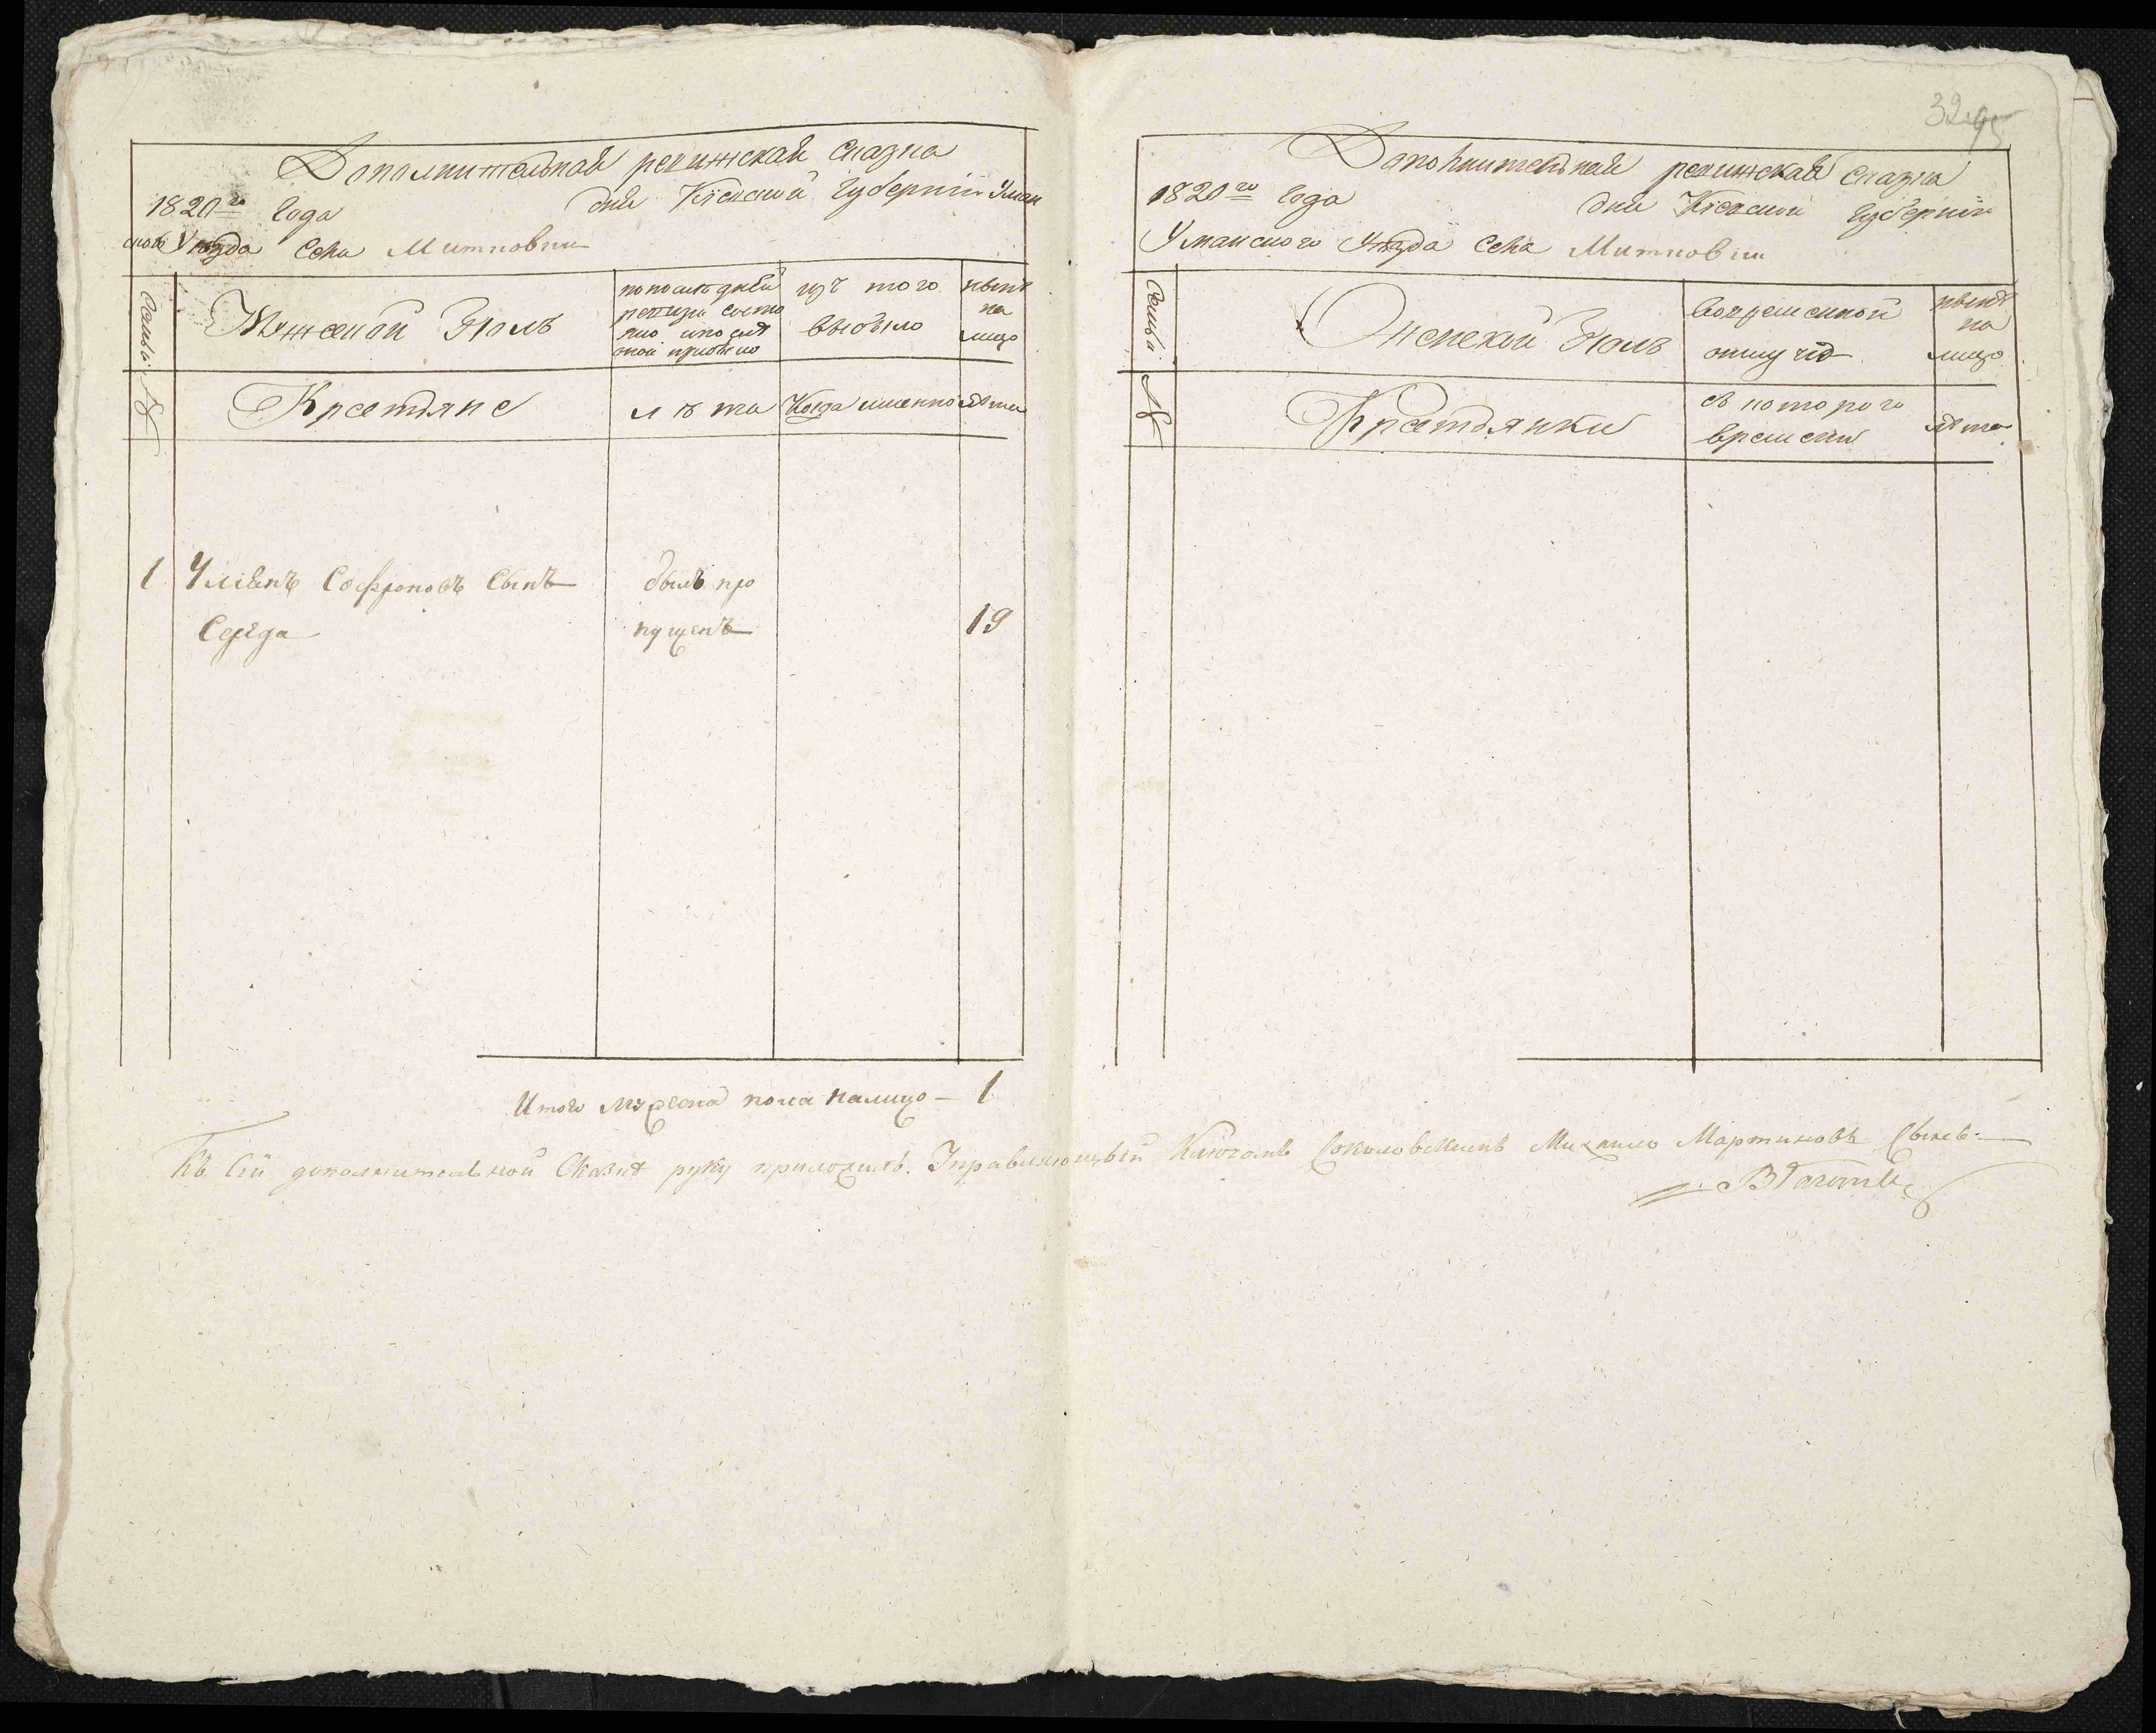 Дополнительная ревижская сказка
1820го Года дня Кіевской Губерніи Уман
ского Уезда Села Митковки
Семьи №
Мужеской Полъ
по последней
ревизіи состо
яло и после
оной прибыло
изъ того
выбыло
ныне
на
лицо
Крестьяне
лѣта
Когда именно
лѣта
1 Ульянъ Софроновъ Сынъ
Середа
былъ про
пущенъ
19
Итого мужеска пола налицо — 1
3295
Дополнительная ревижская сказка
1820го Года дня Кіевской Губерніи
Уманского Уезда Села Митковки
Семьи №
Женской Полъ
Во временной
отлучке
ныне
на
лицо
Крестьянки
съ которого
времени
лѣта
Къ сей дополнительной Сказке руку приложилъ. Управляющый Ключомъ Соколовскимъ Михаило Мартиновъ Сынъ